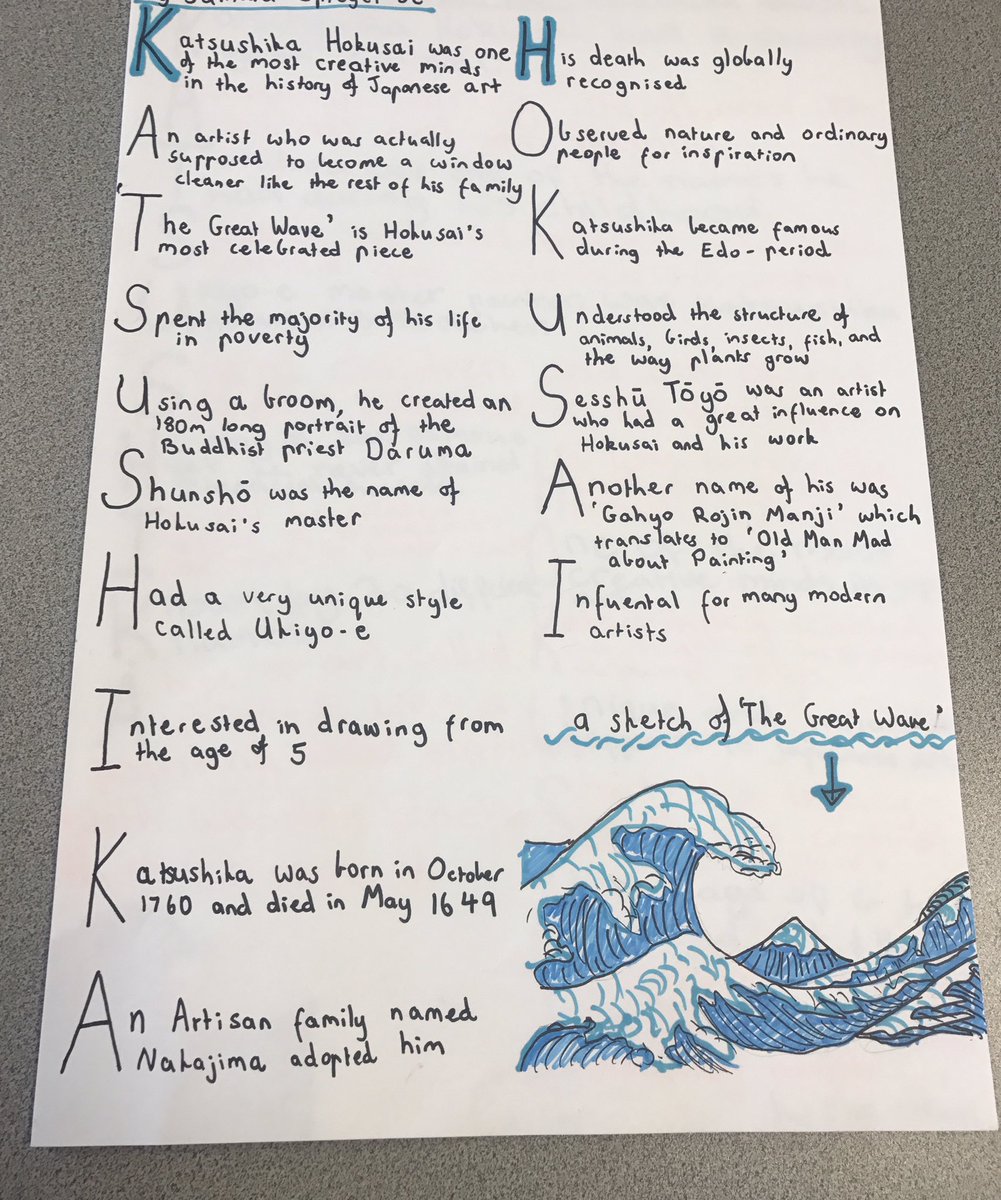 Katsushika Hokusai was one
of the most creative minds
in the history of Japanese art
An artist who was actually
supposed to become a window
cleaner like the rest of his family
'The Great Wave' is Hokusai's
most celebrated piece
Spent the majority of his life
in poverty
Using a broom, he created an
180m long portrait of the
Buddhist priest Daruma
Shunshō was the name of
Hokusai's master
Had a very unique style
called Ukiyo-e
Interested in drawing from
the age of 5
Katsushika was born in October
1760 and died in May 1649
An Artisan family named
Nakajima adopted him
His death was globally
recognised
Observed nature and ordinary
people for inspiration
Katsushika became famous
during the Edo-period
Understood the structure of
animals, birds, insects, fish, and
the way plants grow
Sesshū Tōyō was an artist
who had a great influence on
Hokusai and his work
Another name of his was
'Gahyo Rojin Manji' which
translates to 'Old Man Mad
about Painting'
Infuental for many modern
artists
a sketch of 'The Great Wave'